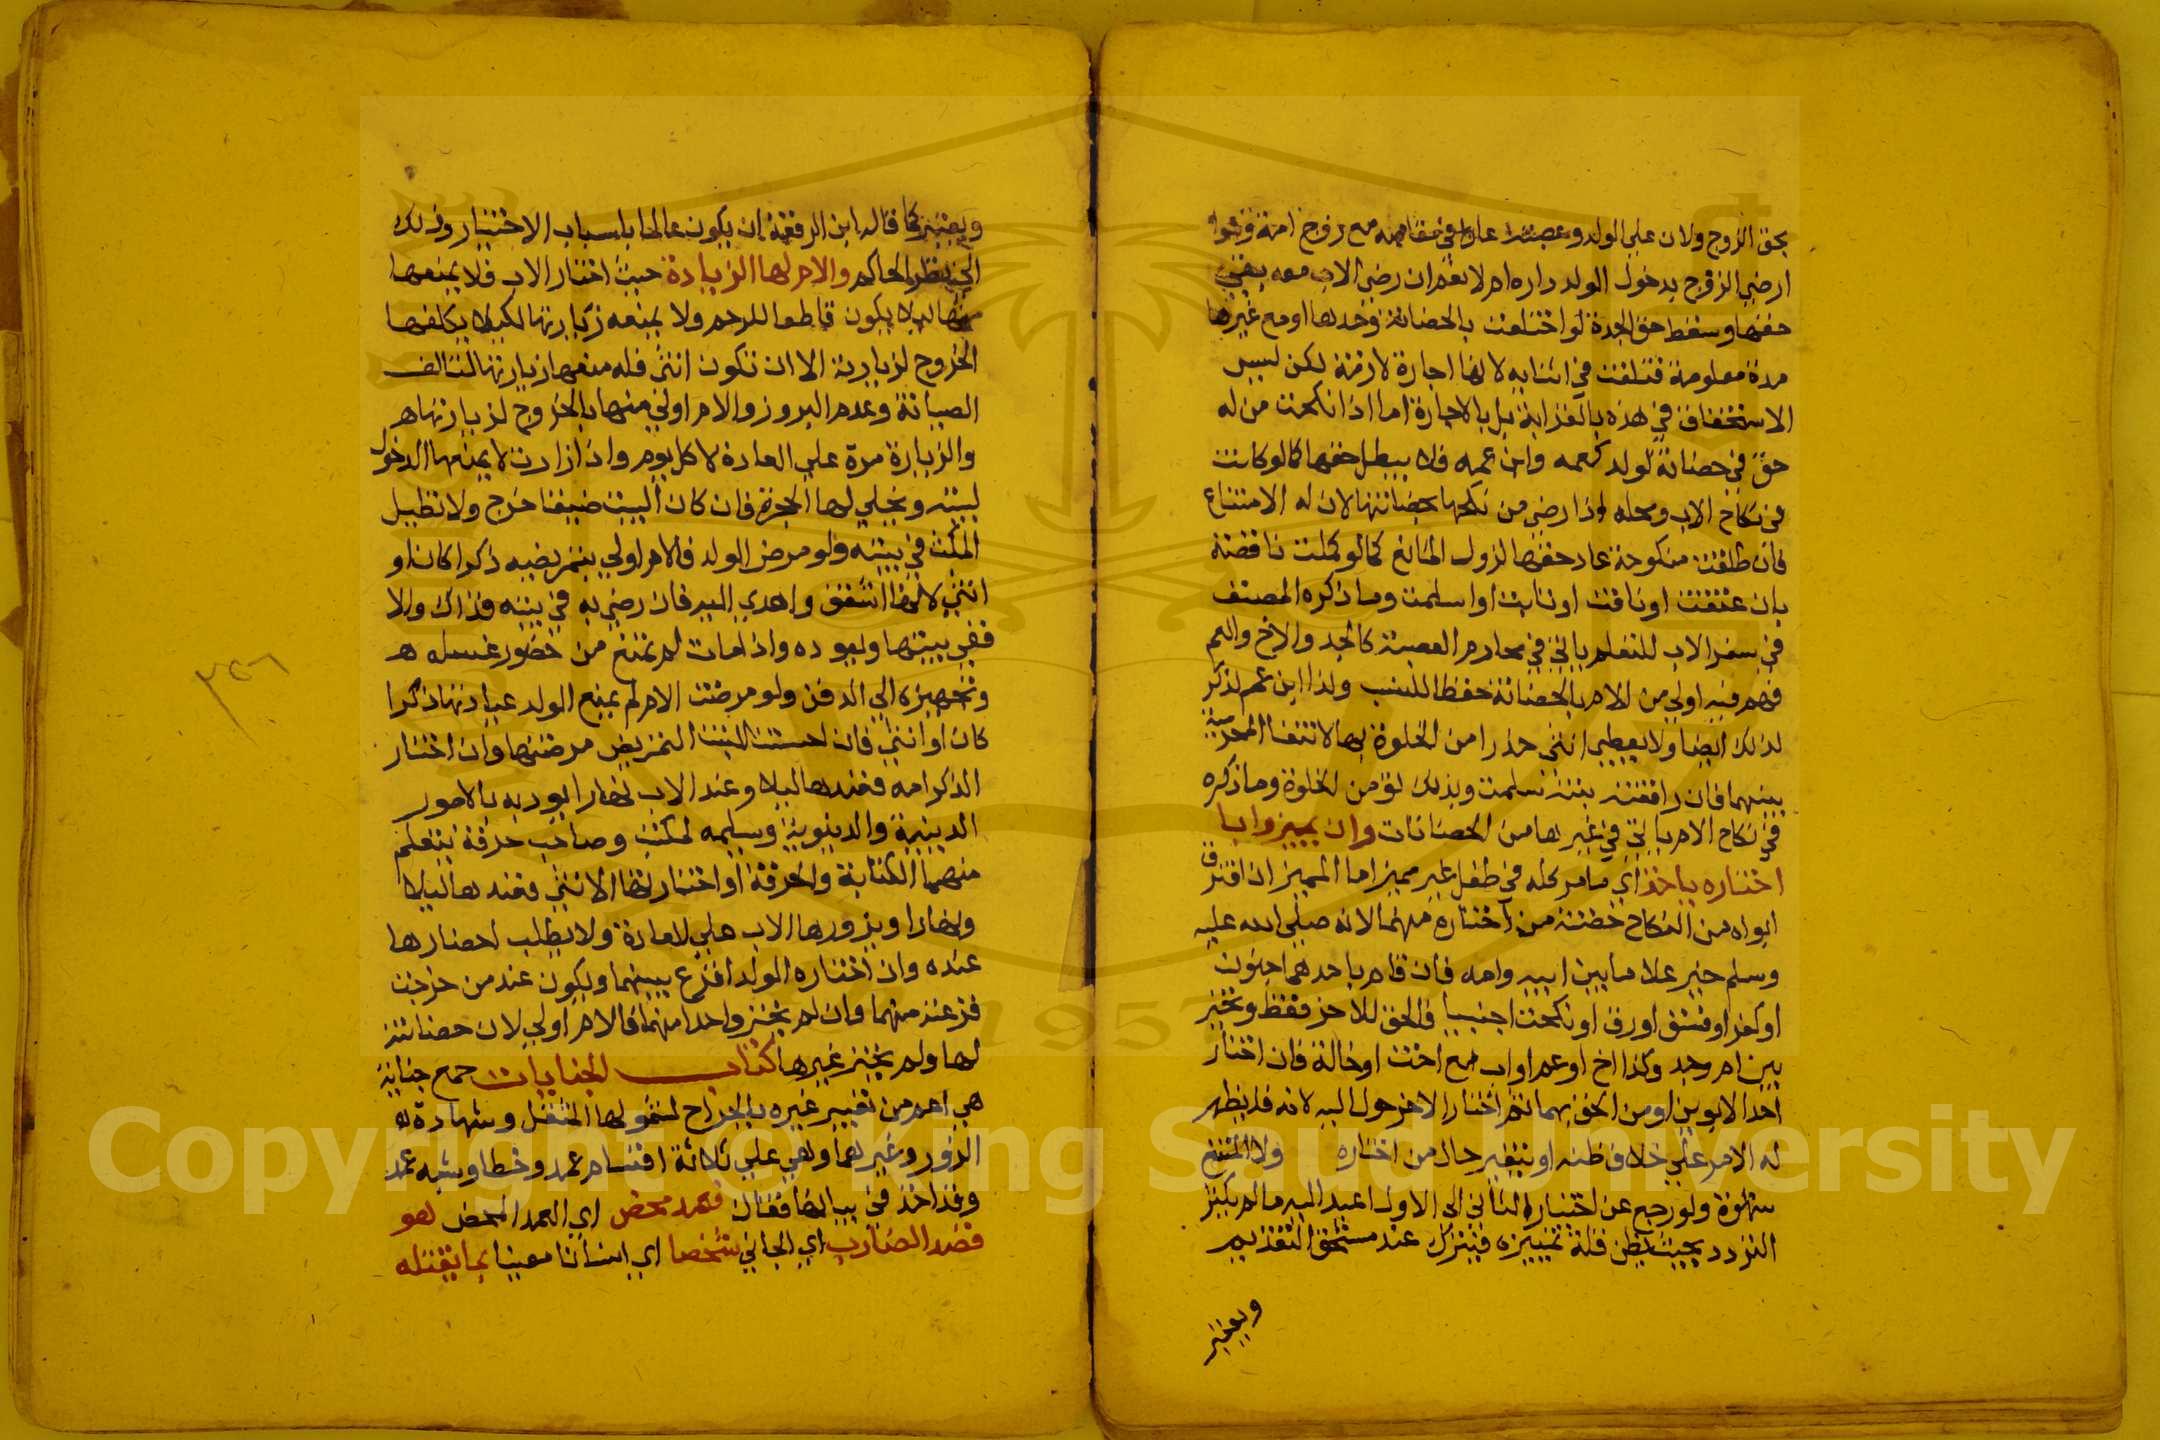 بحق الزوج ولان علي الولد وعصبته عارا في مقامه مع زوج امه وسوا
ارضي الزوج بدخول الولد داره ام لا نعم ان رضي الاب معه بقي
حقها وسقط حق الجدة لو اختلعت بالحضانة وحدها او مع غيرها
مدة معلومة فنكحت في اثنايه لانها اجارة لازمة لكن ليس
الاستحقاق في هذه بالقرابة بل بالاجارة اما اذا نكحت من له
حق في حضانة لولد كعمه وابن عمه فلا يبطل حقها كما لو كانت
في نكاح الاب ومحله اذا رضي من نكحها بحضانتها لان له الامتناع
فان طلقت منكوحة عاد حقها لزوال المانع كما لو كملت ناقصة
بان عتقت او فاقت او تابت او اسلمت وما ذكره المصنف
في سفر الاب للنقلة ياتي في محارم العصبة كالجد والاخ والعم
فهم فيه اولي من الام بالحضانة حفظا للنسب ولذا ابن عم لذكر
لذلك ايضا ولا يعطي انثي حذرا من الخلوة بها لانتفا المحرمية
بينهما فان رافقته بنته سلمت وبذلك تؤمن الخلوة وما ذكره
في نكاح الام ياتي في غيرها من الحضانات وان يميز وابا
اختاره ياخذ اي ما مر كله في طفل غير مميز اما المميز ان افترق
ابواه من النكاح حضنته من اختاره منهما لانه صلي الله عليه
وسلم خير غلاما بين ابيه وامه فان قام باحدهما جنون
او كفر او فسق او رق او نكحت اجنبيا فالحق للاخر فقط وتخير
بين ام وجد وكذا اخ او عم او اب مع اخت او خالة فان اختار
احد الابوين او من الحق بهما ثم اختار الاخر حول اليه لانه قد يظهر
له الامر علي خلاف ظنه او يتغير حال من اختاره ولا المتبع
شهوة ولو رجع عن اختياره الثاني الي الاول اعيد اليه ما لم يكثر
التردد بحيث يظن قلة تمييزه فيترك عند مستحق التقديم
ويعتبر
ويعتبر كما قاله ابن الرفعة ان يكون عالما باسباب الاختيار وذلك
الي نظر الحاكم والام لها الزيادة حيث اختار الاب فلا يمنعها
منها ليلا يكون قاطعا للرحم ولا يمنعه زيارتها لكيلا يكلفها
الخروج لزيارته الا ان تكون انثي فله منعها زيارتها لتتالف
الصيانة وعدم البروز والام اولي منها بالخروج لزيارتها ه
والزيارة مرة علي العادة لا كل يوم واذا زارت لا يمنعها الدخول
لبيته ويخلي لها الحجرة فان كان البيت ضيقا خرج ولا تطيل
المكث في بيته ولو مرض الولد فالام اولي بتمريضه ذكرا كان او
انثي لانها اشفق واهدي اليه فان رضي به في بيته فذاك والا
ففي بيتها ويعوده واذا مات لم تمنع من حضور غسله ه
وتجهيزه الي الدفن ولو مرضت الام لم يمنع الولد عيادتها ذكرا
كان او انثي فان احسنت البنت التمريض مرضتها وان اختار
الذكر امه فعندها ليلا وعند الاب نهارا يؤدبه بالامور
الدينية والدنيوية ويسلمه لمكتب وصاحب حرفة يتعلم
منهما الكتابة والحرفة او اختارتها الانثي فعندها ليلا
ونهارا ويزورها الاب علي العادة ولا يطلب احضارها
عنده وان اختاره الولد اقرع بينهما ويكون عند من خرجت
قرعته منهما فان لم يختر واحدا منهما فالام اولي لان حضانته
لها ولم يختر غيرها كتاب الجنايات جمع جناية
هي اعم من تعبير غيره بالجراح لشمولها المثقل وشهادة ه
الزور وغيرهما وهي علي ثلاثة اقسام عمد وخطا وشبه عمد
وقد اخذ في بيانها فقال فعمد محض اي العمد المحض هو
قصد الضارب اي الجاني شخصا اي انسانا معينا بما يقتله
٣٥٦
Copyright © King Saud University
1957